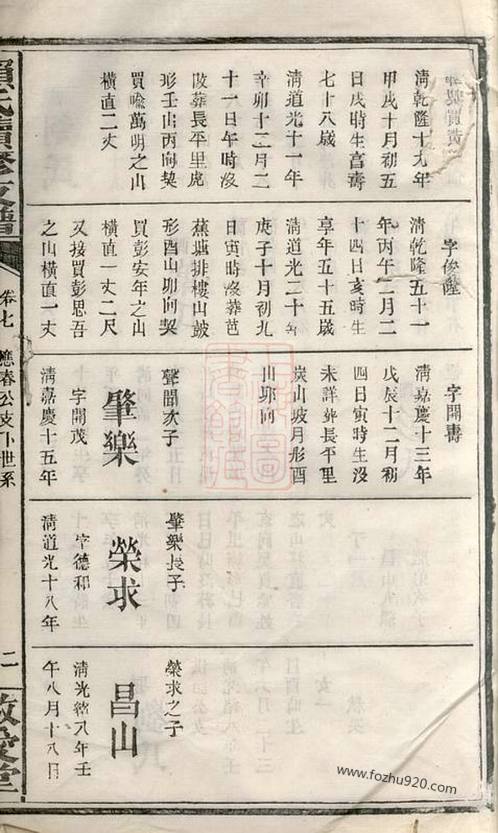 清乾隆十九年
甲戌十月初五
日戌時生享壽
七十八歲
清道光十一年
辛卯十二月二
十一日午時沒
改葬長平里虎
形壬山丙向契
買喻萬明之山
橫直二丈
字俊陞
清乾隆五十一
年丙午二月二
十四日亥時生
享年五十五歲
清道光二十年
庚子十月初九
日寅時沒葬芭
蕉塘排樓山鼓
形酉山卯向契
買彭安年之山
橫直一丈二尺
又接買彭思吾
之山橫直一丈
字開壽
清嘉慶十三年
戊辰十二月初
四日寅時生沒
未詳葬長平里
炭山坡月形酉
山卯向
聲聞次子
肇樂
字開茂
清嘉慶十五年
肇樂長子
榮求
字德和
清道光十八年
榮求之子
昌山
清光緒八年壬
午八月十八日
續修支譜
卷七
應春公支下世系
二
敬愛堂
www.fozhu920.com